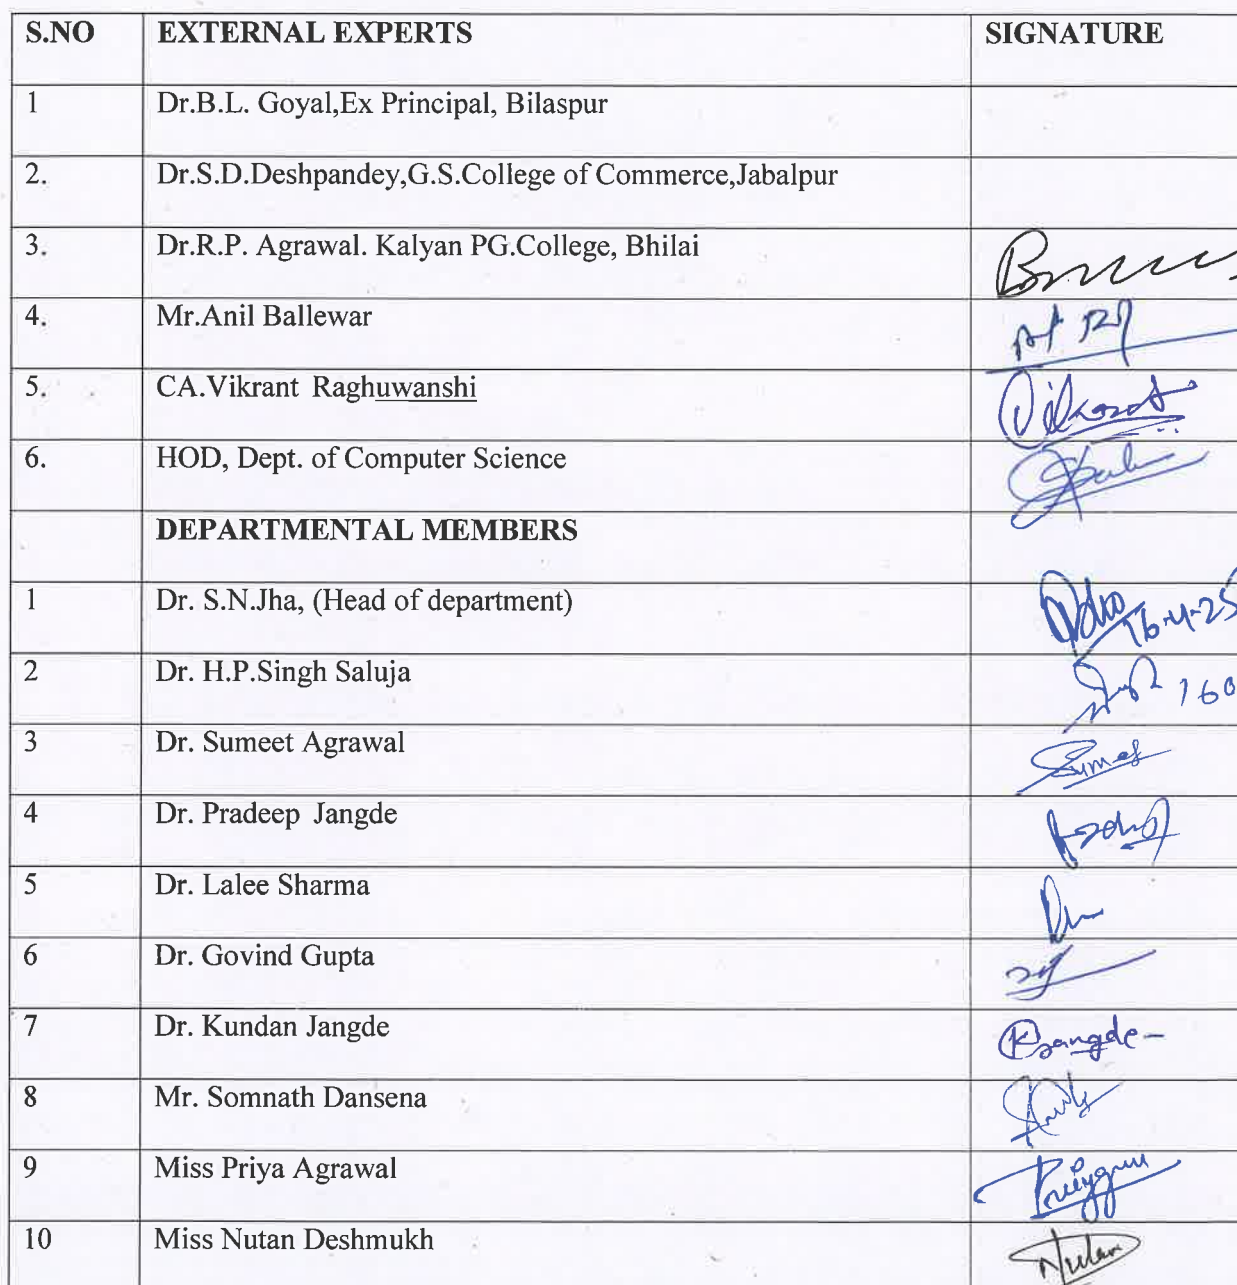 S.NO EXTERNAL EXPERTS SIGNATURE
1 Dr.B.L. Goyal,Ex Principal, Bilaspur
2. Dr.S.D.Deshpandey,G.S.College of Commerce,Jabalpur
3. Dr.R.P. Agrawal. Kalyan PG.College, Bhilai
4. Mr.Anil Ballewar
5. CA.Vikrant Raghuwanshi
6. HOD, Dept. of Computer Science
DEPARTMENTAL MEMBERS
1 Dr. S.N.Jha, (Head of department) 16-4-25
2 Dr. H.P.Singh Saluja 160
3 Dr. Sumeet Agrawal
4 Dr. Pradeep Jangde
5 Dr. Lalee Sharma
6 Dr. Govind Gupta
7 Dr. Kundan Jangde KJangde
8 Mr. Somnath Dansena
9 Miss Priya Agrawal
10 Miss Nutan Deshmukh Nutan